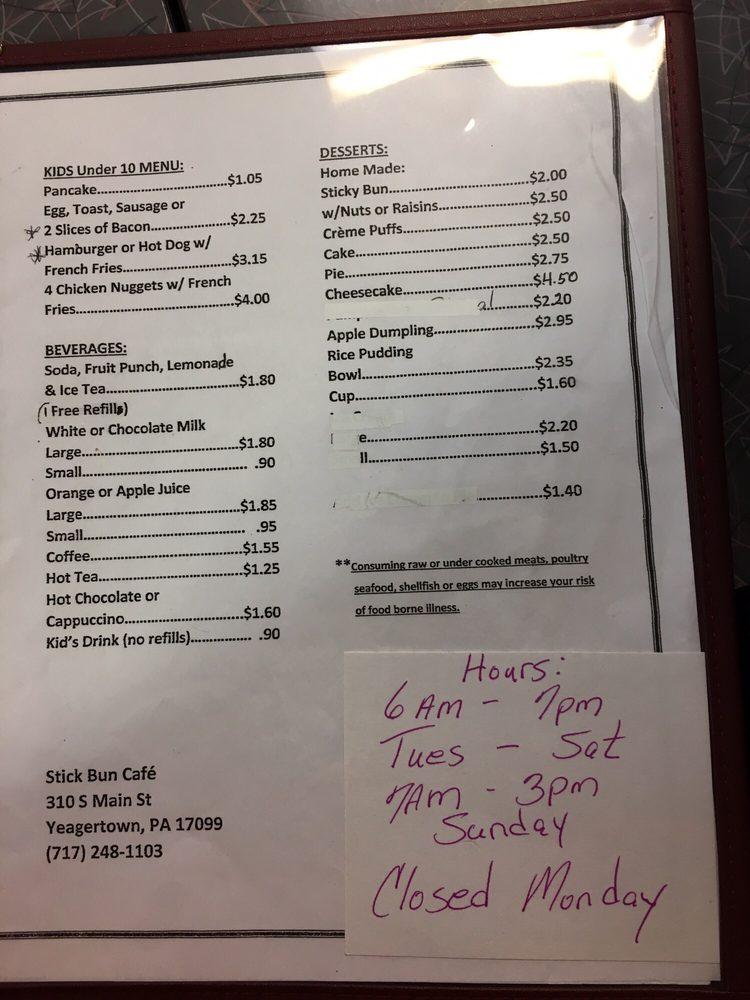 KIDS Under 10 MENU:
Pancake..............................$1.05
Egg, Toast, Sausage or
* 2 Slices of Bacon.........................$2.25
* Hamburger or Hot Dog w/
French Fries.........................$3.15
4 Chicken Nuggets w/ French
Fries.....................................$4.00
BEVERAGES:
Soda, Fruit Punch, Lemonade
& Ice Tea..............................$1.80
(1 Free Refill)
White or Chocolate Milk
Large....................................$1.80
Small.................................... .90
Orange or Apple Juice
Large....................................$1.85
Small.................................... .95
Coffee...................................$1.55
Hot Tea.................................$1.25
Hot Chocolate or
Cappuccino...........................$1.60
Kid's Drink (no refills)................ .90
Stick Bun Café
310 S Main St
Yeagertown, PA 17099
(717) 248-1103
DESSERTS:
Home Made:
Sticky Bun..............................$2.00
w/Nuts or Raisins.....................$2.50
Crème Puffs...........................$2.50
Cake.....................................$2.50
Pie........................................$2.75
Cheesecake...........................$4.50
al..........$2.20
Apple Dumpling.....................$2.95
Rice Pudding
Bowl.....................................$2.35
Cup......................................$1.60
e....................................$2.20
ll....................................$1.50
................$1.40
**Consuming raw or under cooked meats, poultry
seafood, shellfish or eggs may increase your risk
of food borne illness.
Hours:
6 AM - 7pm
Tues - Sat
7AM - 3pm
Sunday
Closed Monday